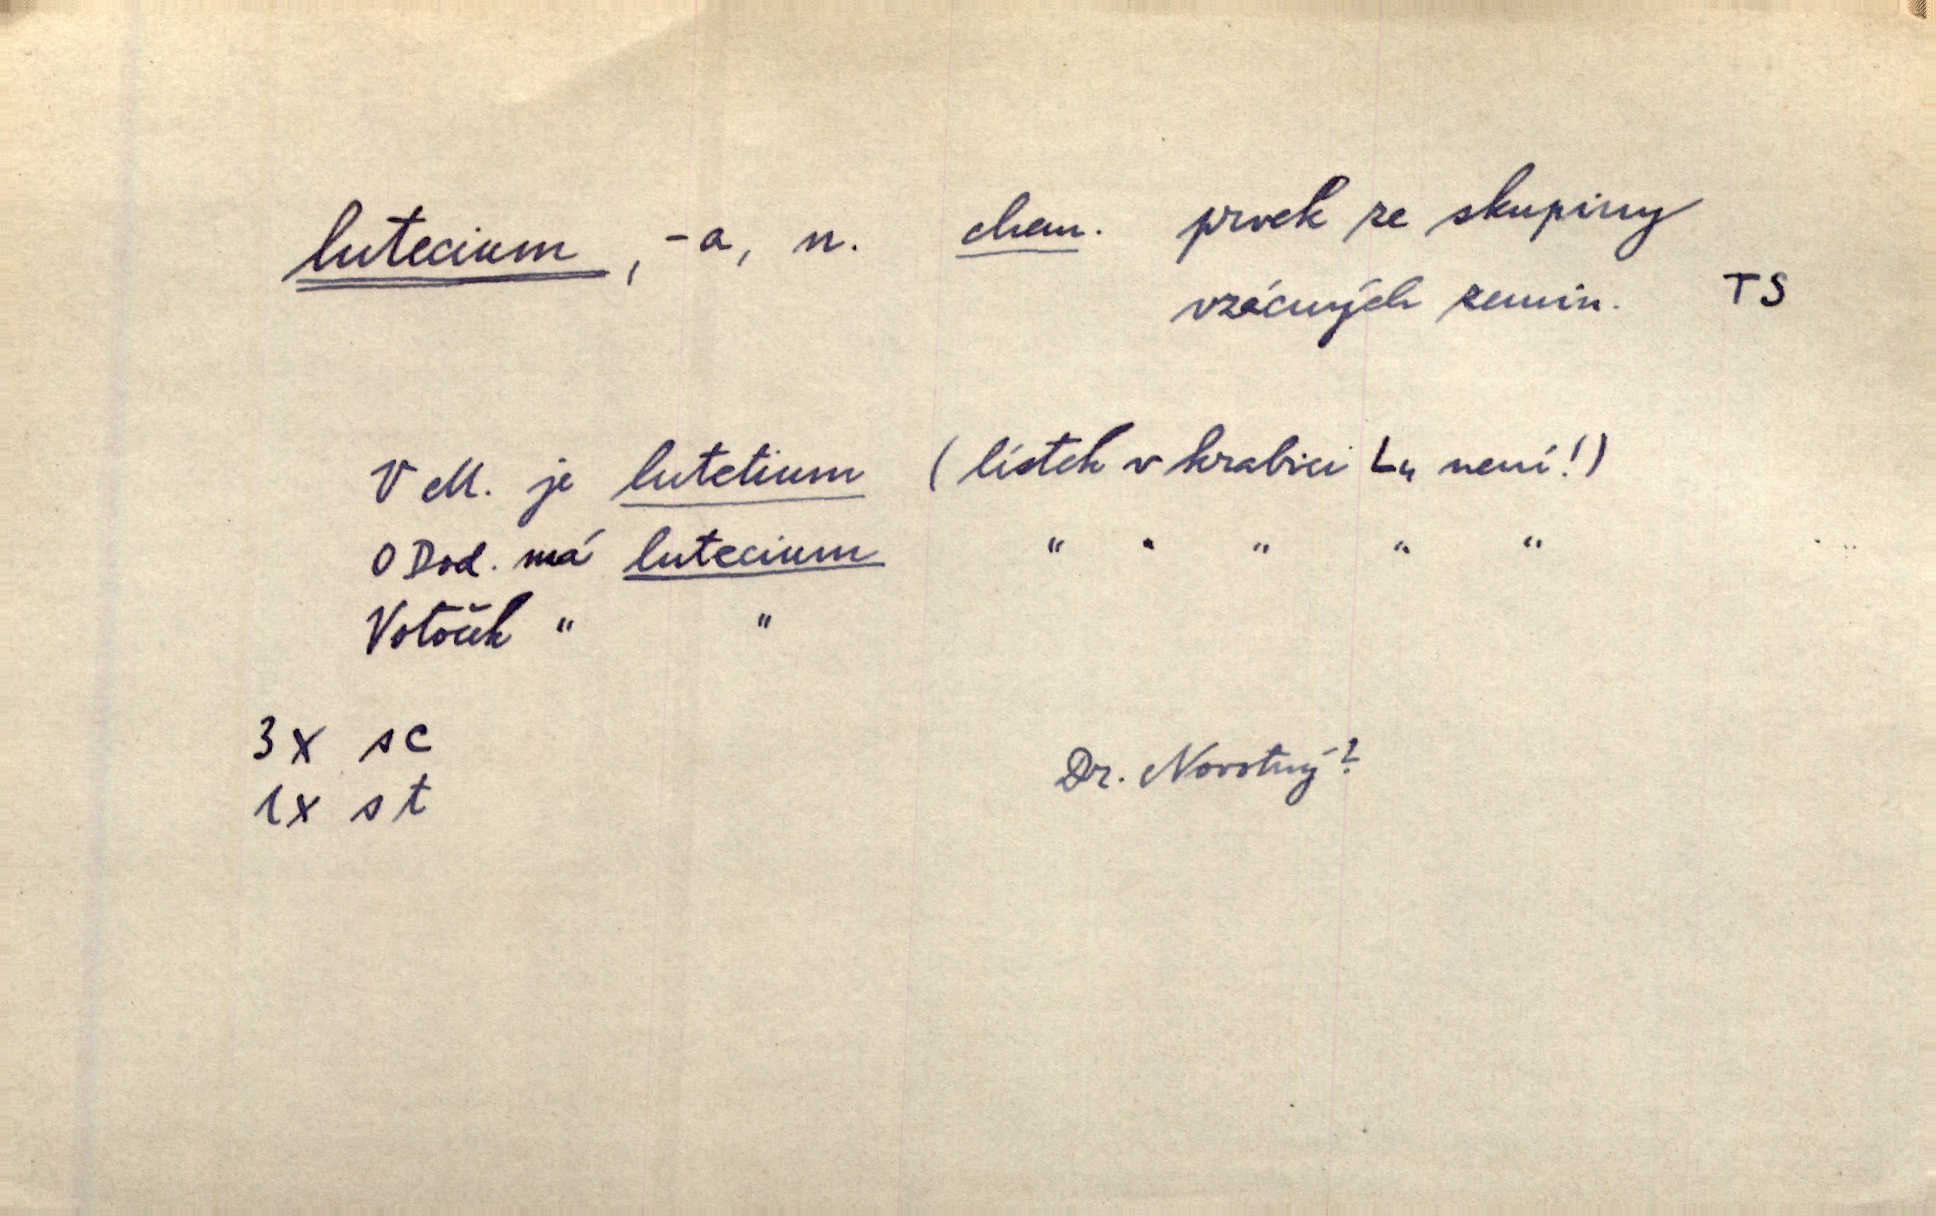 lutecium, -a, n. chem. prvek ze skupiny
vzácných zemin. TS
V M. je lutetium (lístek v krabici Lu není!)
O Dod. má lutecium " " " " "
Votoček " "
3x sc
1x st
Dr. Novotný?